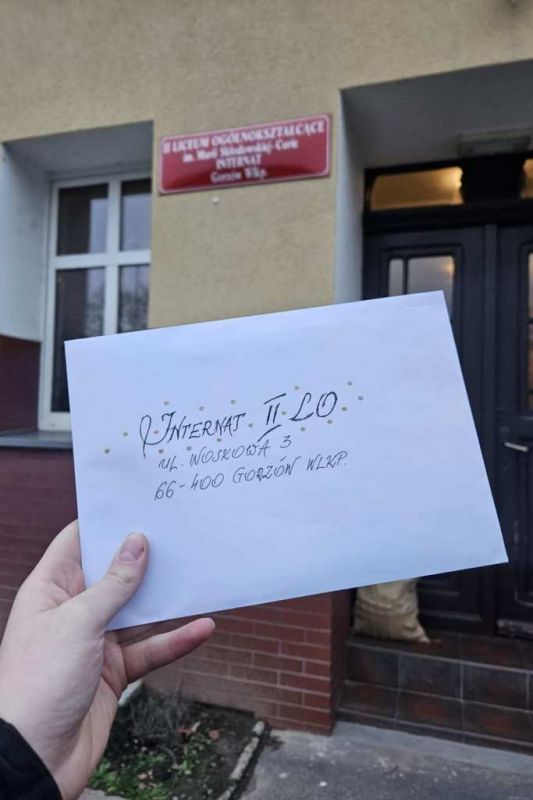 II LICEUM OGÓLNOKSZTAŁCĄCE
im. Marii Skłodowskiej-Curie
INTERNAT
Gorzów Wlkp.
INTERNAT II LO
UL. WOSKOWA 3
66-400 GORZÓW WLKP.